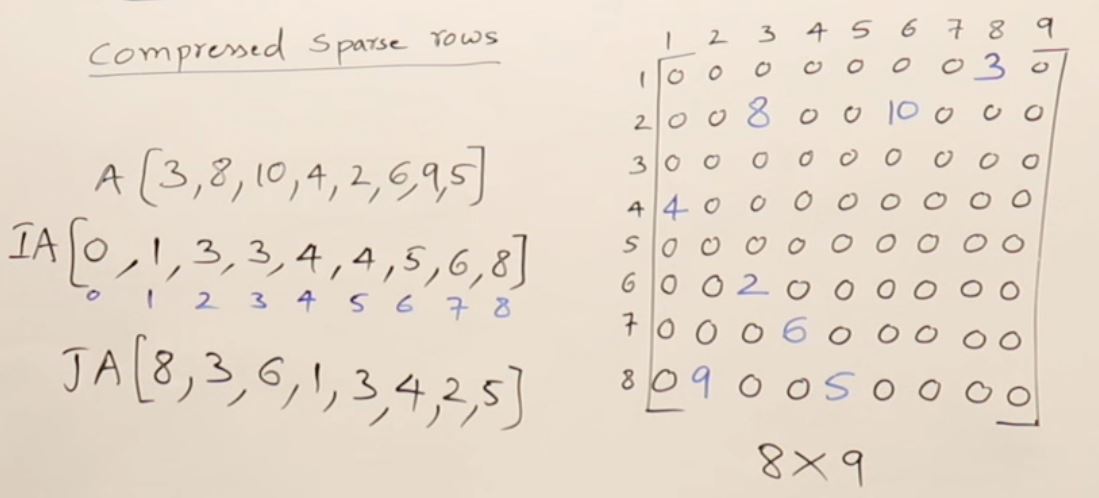 Compressed Sparse rows
A [3,8,10,4,2,6,9,5]
IA [0,1,3,3,4,4,5,6,8]
0 1 2 3 4 5 6 7 8
JA [8,3,6,1,3,4,2,5]
1 2 3 4 5 6 7 8 9
1 0 0 0 0 0 0 0 3 0
2 0 0 8 0 0 10 0 0 0
3 0 0 0 0 0 0 0 0 0
4 4 0 0 0 0 0 0 0 0
5 0 0 0 0 0 0 0 0 0
6 0 0 2 0 0 0 0 0 0
7 0 0 0 6 0 0 0 0 0
8 0 9 0 0 5 0 0 0 0
8×9